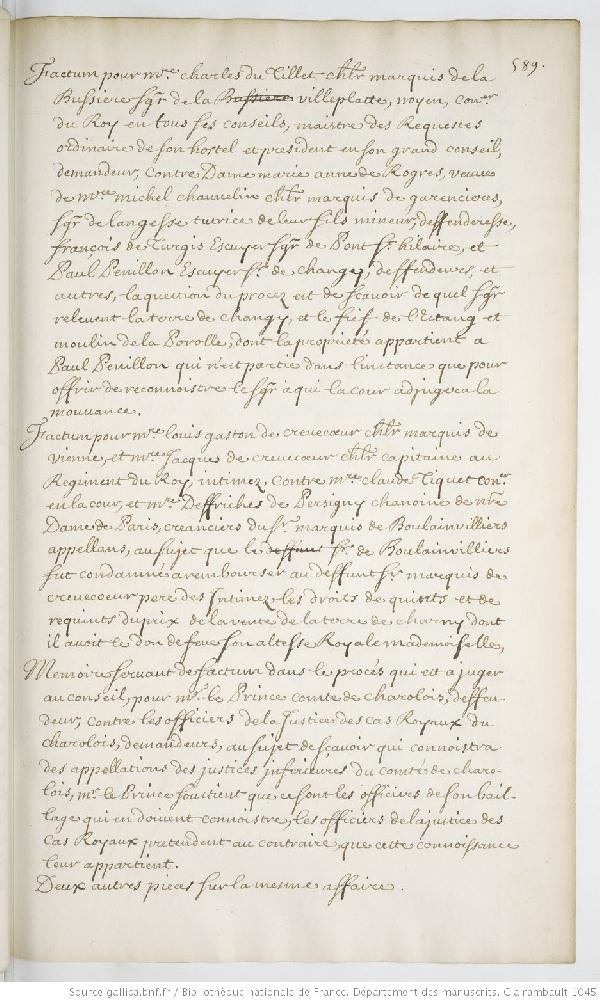 589.
Factum pour mre. charles du Tillet chlr marquis de la
Bussiere sgr de la Bussiere villeplatte, noyen, coner
du Roy en tous ses conseils, maistre des Requestes
ordinaire de son hostel et president en son grand conseil,
demandeur, contre Dame marie anne de Rogres, veuve
de mre michel chauvelin chlr marquis de garencieres,
sgr de langesse tutrice de leur fils mineur, deffenderesse,
françois de Turgis Escuyer sgr de Pont st. hilaire, et
Paul Penillon Escuyer sr. de changy, deffendeurs, et
autres, la question du procez est de scavoir de quel sgr
relevent la terre de changy, et le fief de l'Estang et
moulin de la Parolle, dont la proprieté appartient a
Paul Penillon qui n'est partie dans l'instance que pour
offrir de reconnoistre le sgr a qui la cour adjugera la
mouvance.
Factum pour mre louis gaston de crevecœur chlr marquis de
vienne, et mre Jacques de crevecœur chlr capitaine au
Regiment du Roy, intimez, contre mre claude Tiquet coner
en la cour, et mre Deffriches de Persigny chanoine de nre
Dame de Paris, creanciers du sr. marquis de Boulainvilliers
appellans, au sujet que le deffunt sr. de Boulainvilliers
fut condamné a rembourser au deffunt sr marquis de
crevecoeur pere des Intimez les droits de quints et de
requints du prix de la vente de la terre de charny dont
il avoit le don de feue son altesse Royale mademoiselle,
Memoire servant de factum dans le procés qui est a juger
au conseil, pour mr. le Prince comte de charolois, deffen-
deur, contre les officiers de la Justice des cas Royaux du
charolois, demandeurs, au sujet de sçavoir qui connoistra
des appellations des justices inferieures du comté de charo-
lois, mr. le Prince soustient que ce sont les officiers de son bail-
lage qui en doivent connoistre, les officiers de la justice des
cas Royaux pretendent au contraire, que cette connoissance
leur appartient.
Deux autres pieces sur la mesme affaire.
Source gallica.bnf.fr / Bibliothèque nationale de France. Département des manuscrits. Clairambault 1045